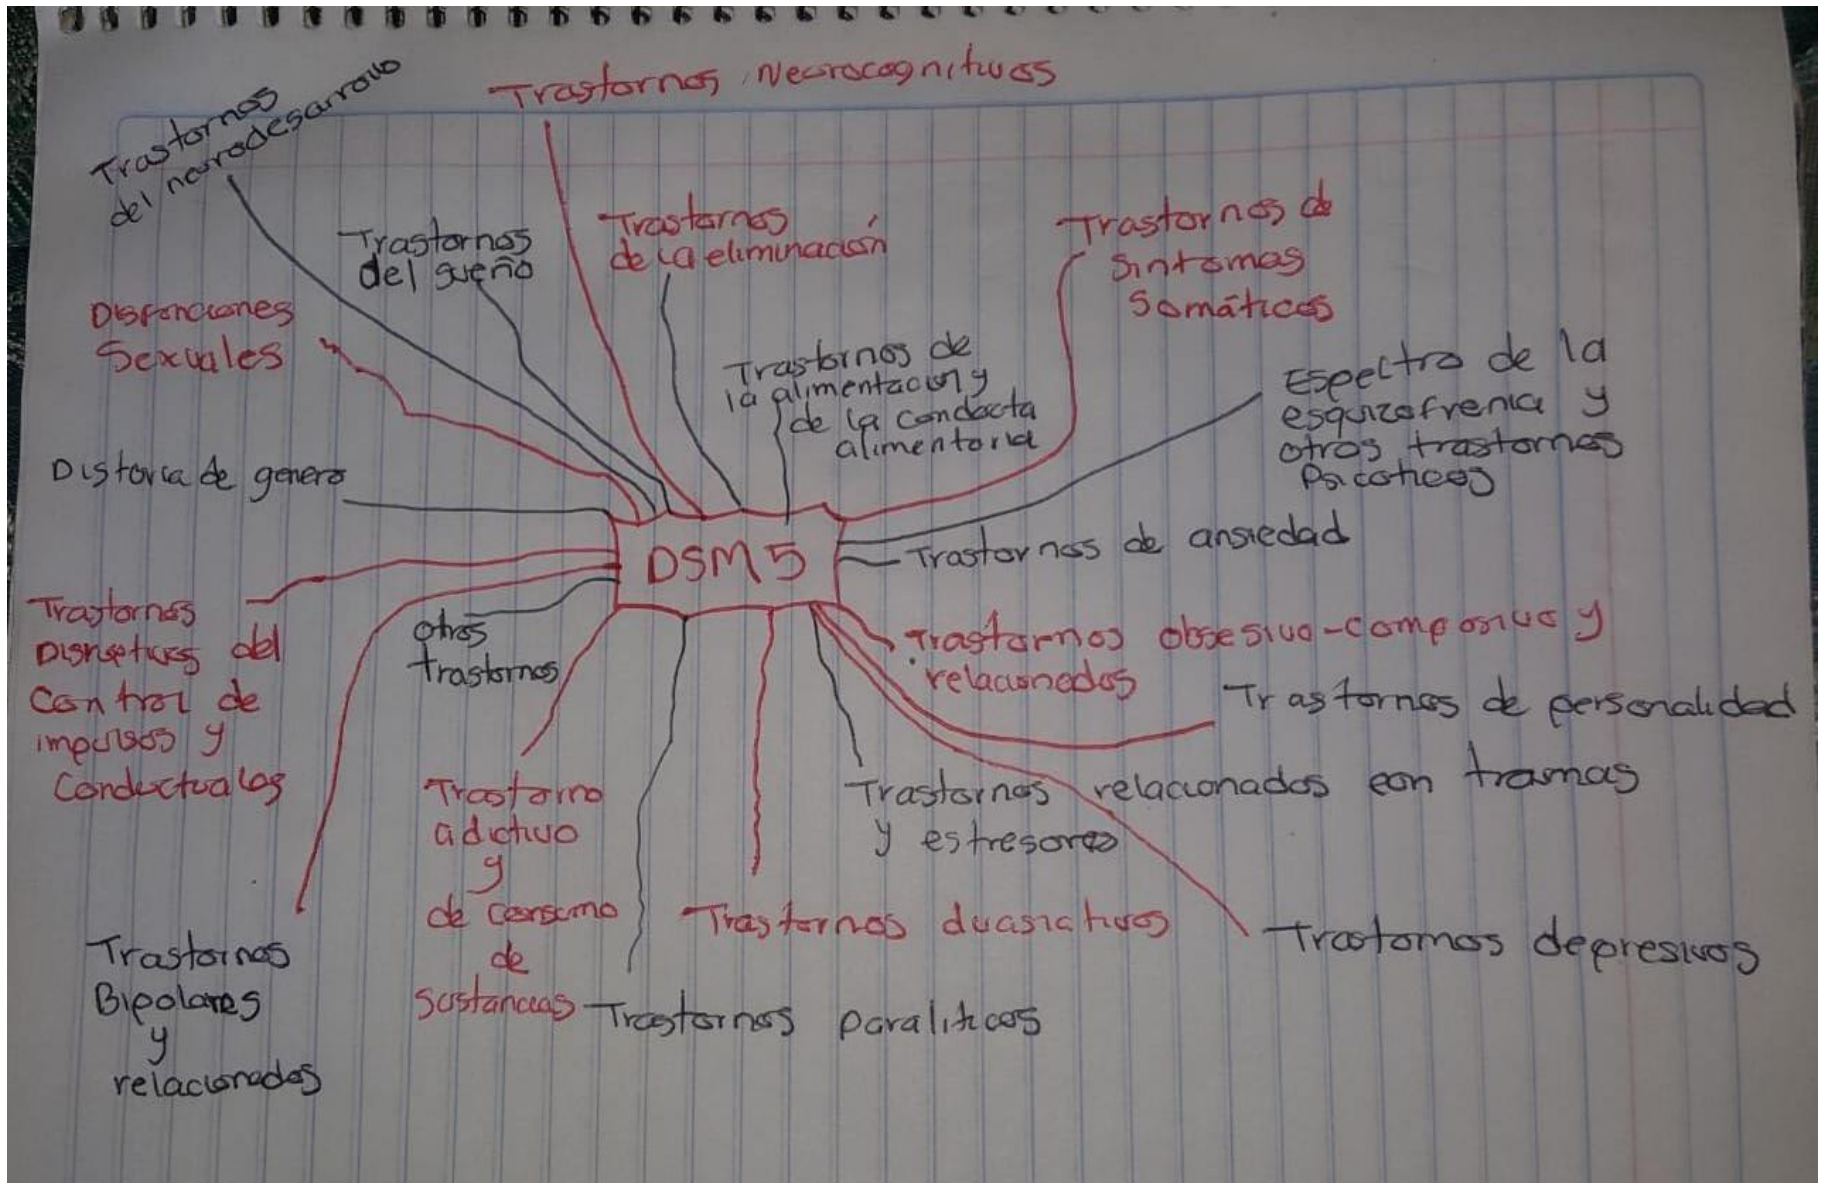 Trastornos
del neurodesarrollo
Trastornos Neurocognitivos
Trastornos
del sueño
Trastornos
de la eliminación
Trastornos de
sintomas
Somáticos
Disfunciones
Sexuales
Trastornos de
la alimentacion y
de la conducta
alimentoria
Espectro de la
esquizofrenia y
otros trastornos
Psicoticos
Distoria de genero
DSM5
Trastornos de ansiedad
Trastornos
Disruptivos del
Control de
impulsos y
Conductuales
otros
trastornos
Trastornos obsesivo-composivo y
relacionados
Trastornos de personalidad
Trastorno
adictivo
y
de consumo
de
Sustancias
Trastornos relacionados con tramas
y estresores
Trastornos
Bipolares
y
relacionados
Trastornos duasiativos
Trastornos depresivos
Trastornos paraliticos